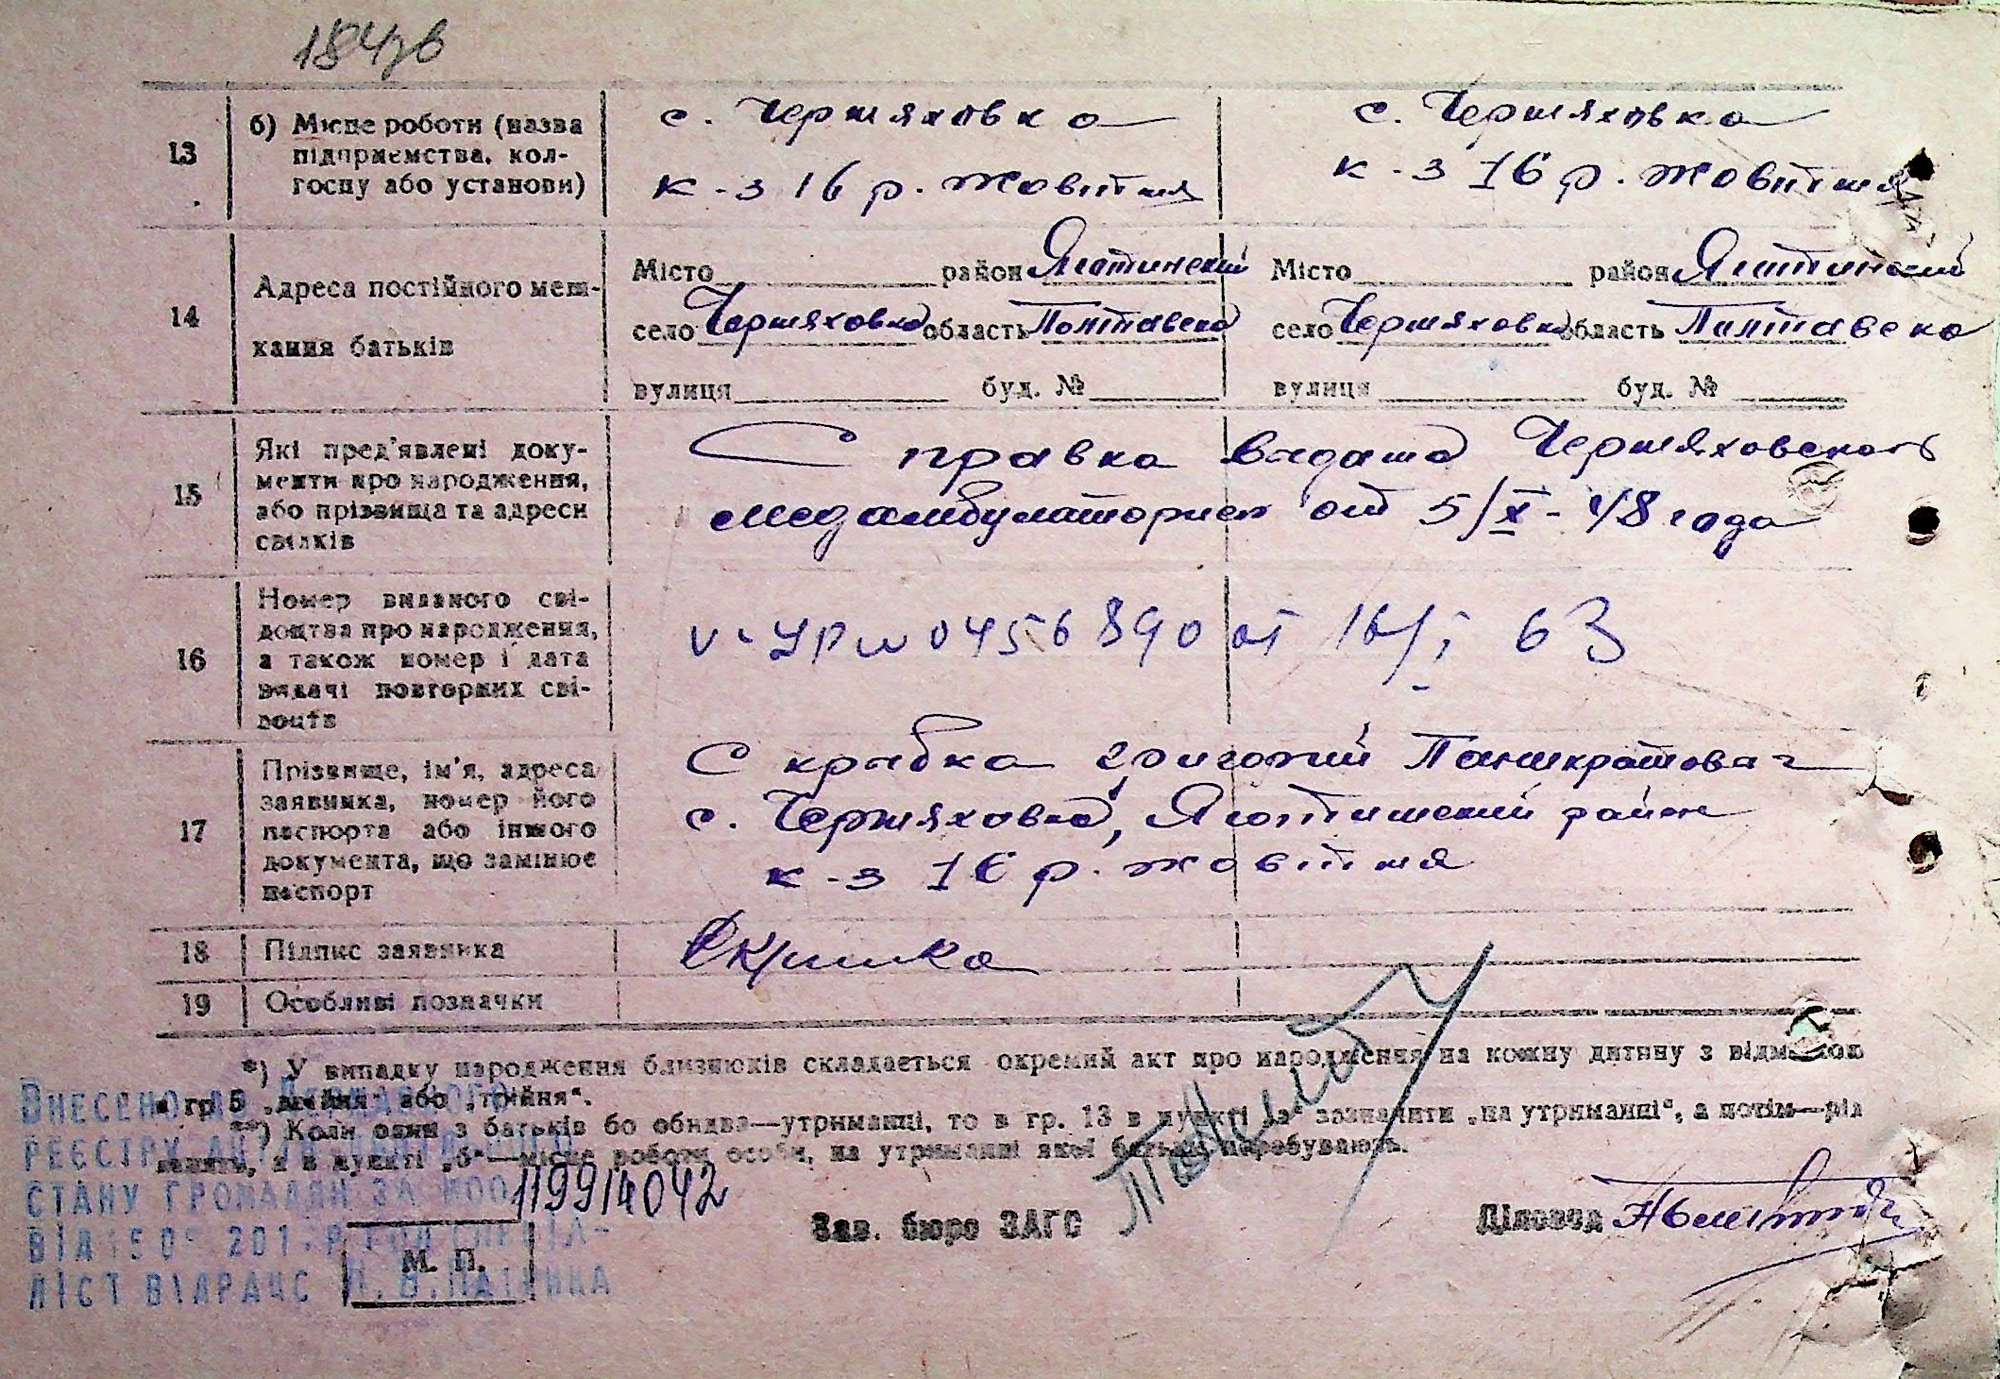 184зв
13
б) Місце роботи (назва
підприємства, кол-
госпу або установи)
с. Черняховка
к-з 16 р. Жовтня
с. Черняховка
к-з 16 р. Жовтня
14
Адреса постійного меш-
кання батьків
Місто район Яготинский
село Черняховка область Полтавска
вулиця буд. №
Місто район Яготинский
село Черняховка область Полтавска
вулиця буд. №
15
Які пред'явлені доку-
менти про народження,
або прізвища та адреси
свідків
Справка выдана Черняховской
медамбулаторией от 5/X-48 года
16
Номер виданого сві-
доцтва про народження,
а також номер і дата
видачі повторних сві-
доцтв
0456890 от 16/I 63
17
Прізвище, ім'я, адреса
заявника, номер його
паспорта або іншого
документа, що замінює
паспорт
Скрыбка Григорий Панкратова
с. Черняховка, Яготинский район
к-з 16 р. жовтня
18
Підпис заявника
19
Особливі позначки
*) У випадку народження близнюків складається окремий акт про народження на кожну дитину з відміткою
в гр. 5 „двійня" або „трійня".
**) Коли один з батьків бо обидва—утриманці, то в гр. 13 в пункті „а" зазначити „на утриманці", а потім—від
, а в пункті „б"—місце роботи особи, на утриманні якої батьки перебувають.
Внесено до Державного
реєстру актів
стану громадян за №00119914042
від 201 р.
ліст відрацс
М. П.
Зав. бюро ЗАГС
Діловод